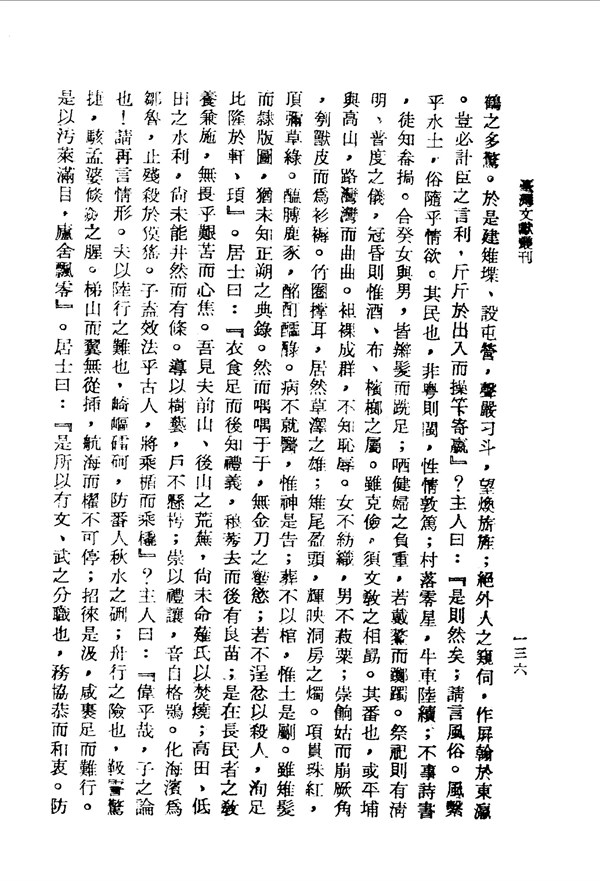 臺灣文獻叢刊
一三六
鶴之多驚。於是建雉堞、設屯營，聲嚴刁斗，望煥旂旌；絕外人之窺伺，作屏翰於東瀛
。豈必計臣之言利，斤斤於出入而操竿奇贏』？主人曰：『是則然矣；請言風俗。風繫
乎水土，俗隨乎情欲。其民也，非粵則閩，性情敦篤；村落零星，牛車陸續；不事詩書
，徒知畚挶。合癸女與男，皆辮髮而跣足；哂健婦之負重，若戴鰲而躑躅。祭祀則有清
明、普度之儀，冠昏則惟酒、布、檳榔之屬。雖克儉，須文敎之相勗。其番也，或平埔
與高山，路灣灣而曲曲。袒裸成群，不知恥辱。女不紡織，男不菽粟；崇餉姑而崩厥角
，刳獸皮而爲衫褥。竹圈撑耳，居然草澤之雄；雉尾盈頭，輝映洞房之燭。項貫珠紅，
頂彌草綠。醢膊鹿豕，酩酊醽醁。病不就醫，惟神是告；葬不以棺，惟土是劚。雖雉髮
而隸版圖，猶未知正朔之典錄。然而喁喁于于，無金刀之蟄慾；若不逞忿以殺人，洵足
比隆於軒、頊』。居士曰：『衣食足而後知禮義，稂莠去而後有良苗；是在長民者之敎
養兼施，無畏乎艱苦而心焦。吾見夫前山、後山之荒蕪，尙未命薙氏以焚燒；高田、低
田之水利，尙未能井然而有條。導以樹藝，戶不懸枵；崇以禮讓，音白格鴞。化海濱爲
鄒魯，止殘殺於獏猺。子盍效法乎古人，將乘楯而乘橇』？主人曰：『偉乎哉，子之論
也！請再言情形。夫以陸行之難也，崎嶇礌砢，防番人秋水之硎；舟行之險也，靸雪驚
捷，駭孟婆倏淰之腥。梯山而翼無從插，航海而櫂不可停；招徠是汲，咸裹足而難行。
是以汚萊滿目，廬舍飄零』。居士曰：『是所以有文、武之分職也，務協恭而和衷。防